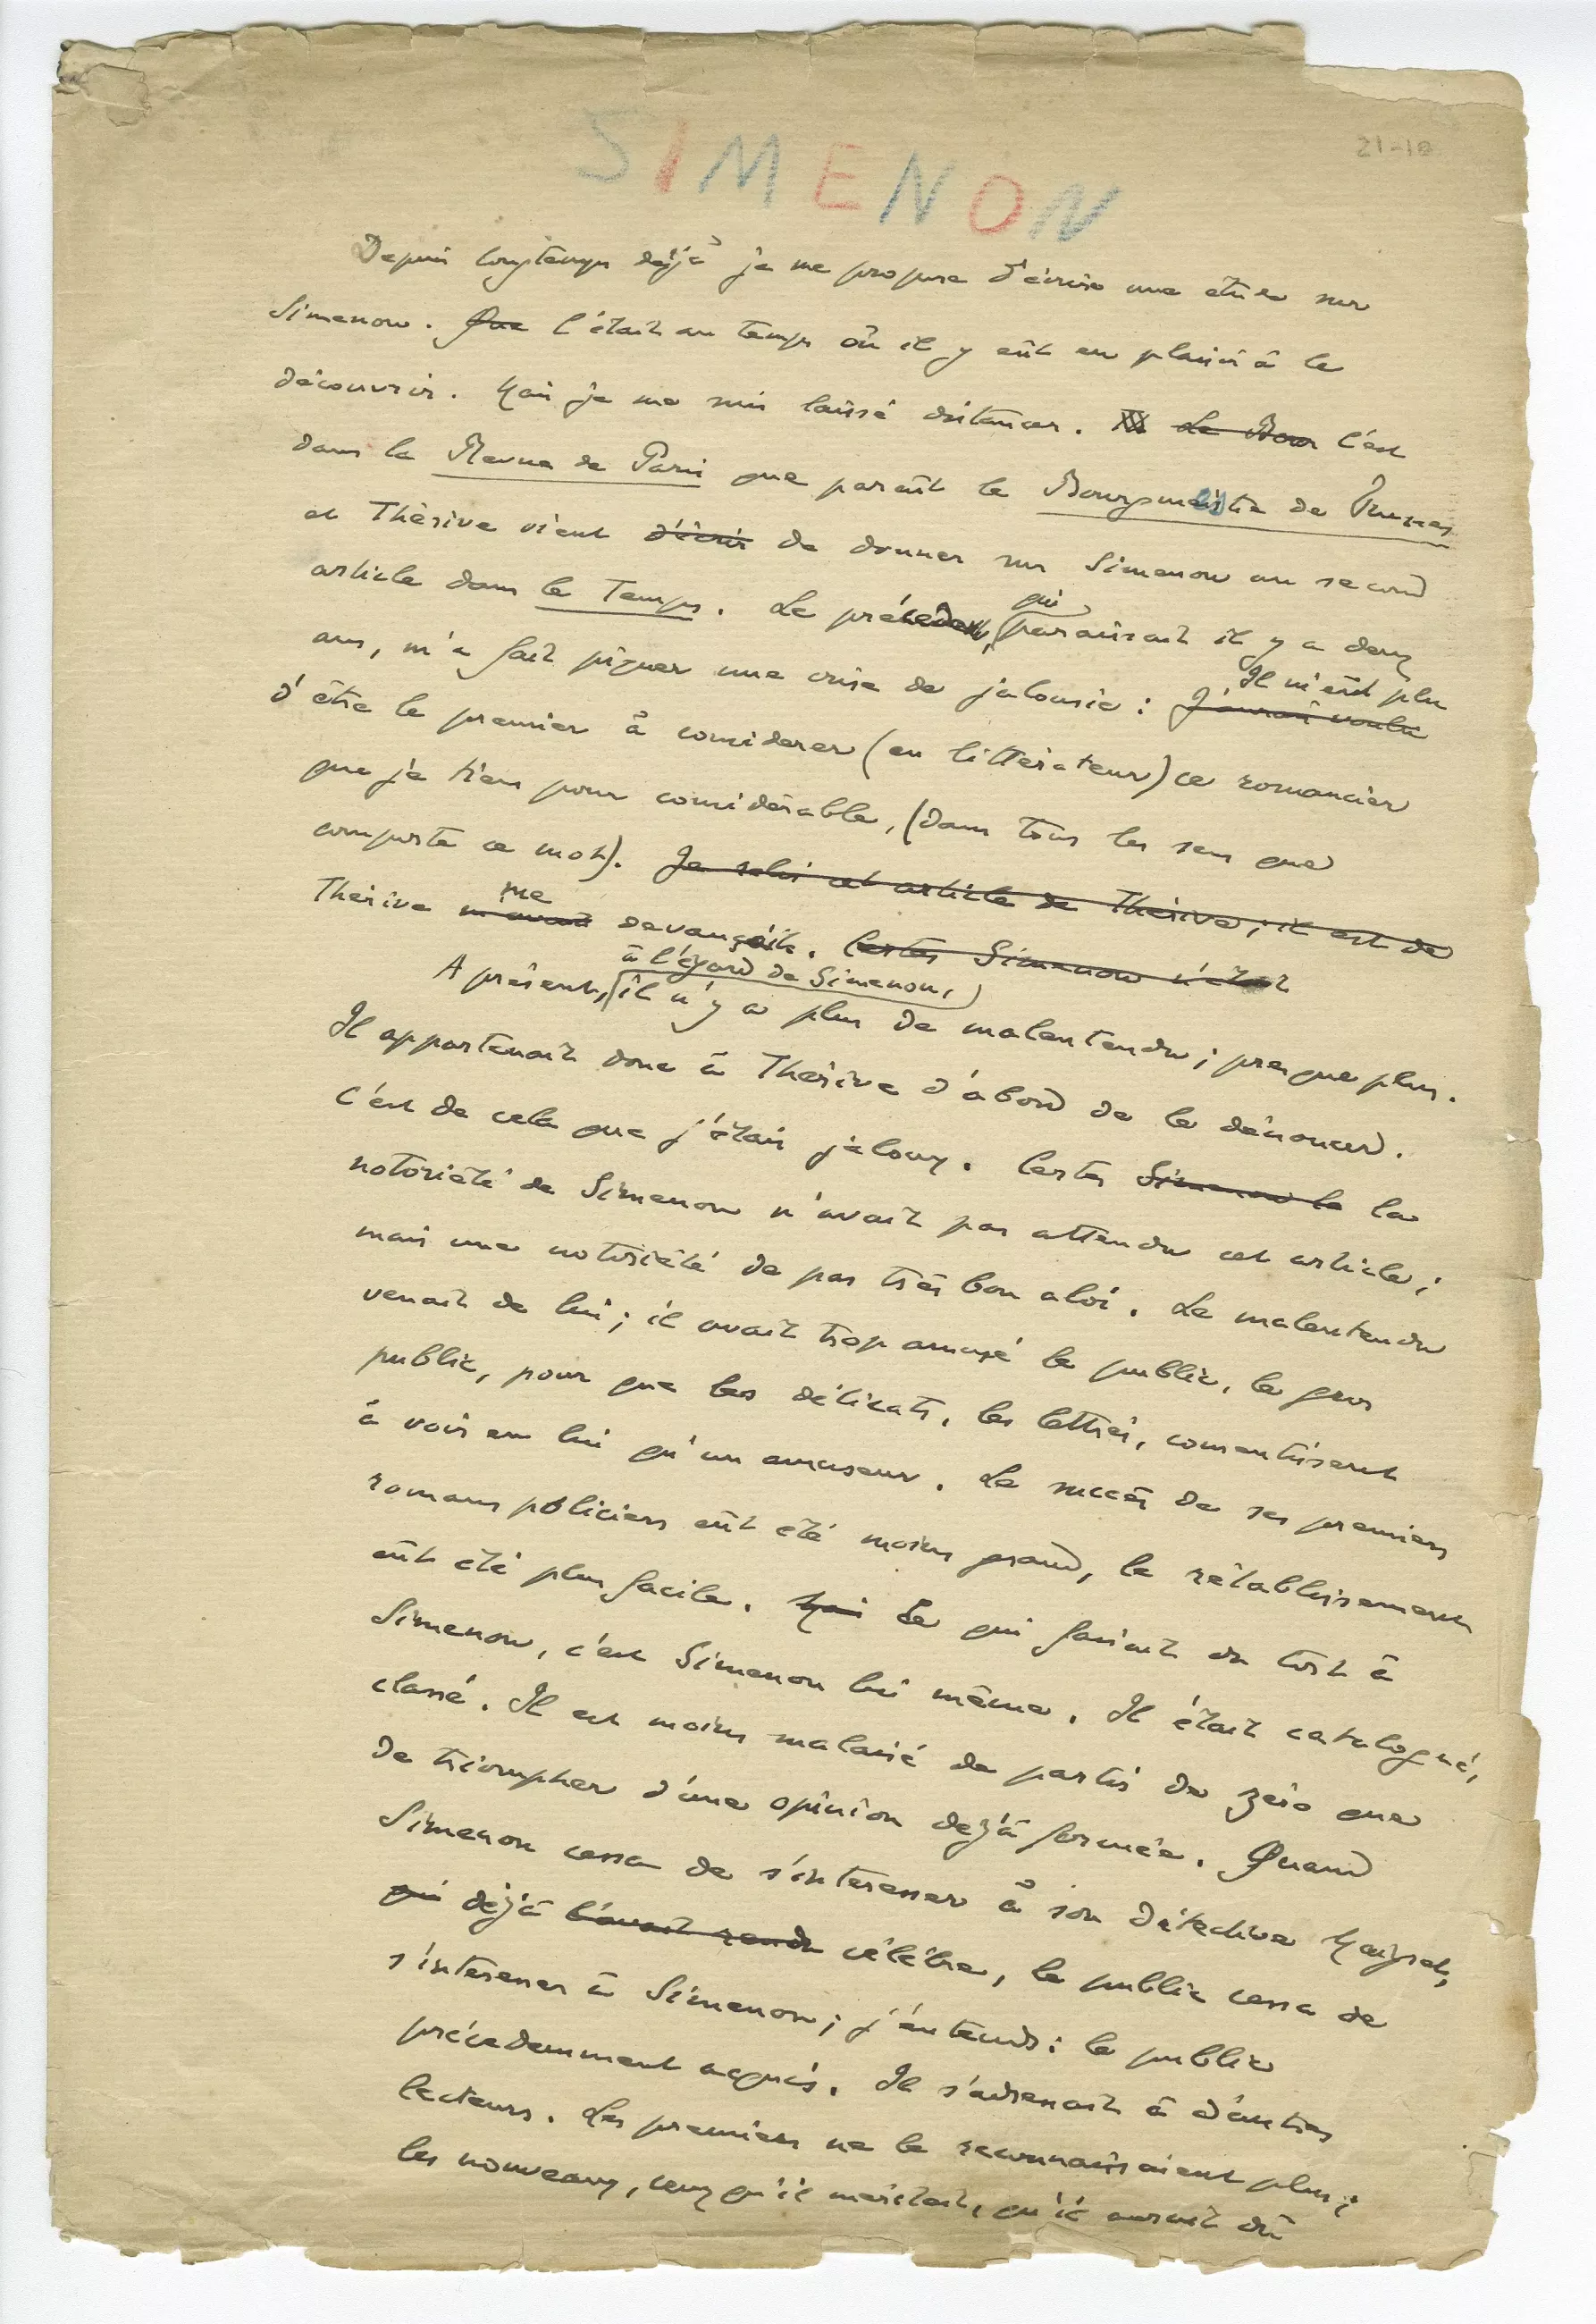 21-10
SIMENON
Depuis longtemps déjà je me propose d'écrire une étude sur
Simenon. Que C'était au temps où il y eût eu plaisir à le
découvrir. Mais je me suis laissé distancer. Le Bour C'est
dans la Revue de Paris que paraît le Bourgmestre de Furnes
et Thérive vient d'écrir de donner sur Simenon un second
article dans le Temps. Le précédent, qui paraissait il y a deux
ans, m'a fait piquer une crise de jalousie : J'aurais voulu Il m'eût plu
d'être le premier à considerer (en littérateur) ce romancier
que je tiens pour considérable, (dans tous les sens que
comporte ce mot). Je relis cet article de Thérive ; il est de
Thérive m'avait me devançait. Certes Simenon n'était
A présent, à l'égard de Simenon, il n'y a plus de malentendu ; presque plus.
Il appartenait donc à Thérive d'abord de le dénoncer.
C'est de cela que j'étais jaloux. Certes Simenon le la
notoriété de Simenon n'avait pas attendu cet article ;
mais une notoriété de pas très bon aloi. Le malentendu
venait de lui ; il avait trop amusé le public, le gros
public, pour que les délicats, les lettrés, consentissent
à voir en lui qu'un amuseur. Le succès de ses premiers
romans policiers eût été moins grand, le rétablissement
eût été plus facile. Mais Ce qui faisait du tort à
Simenon, c'est Simenon lui même. Il était catalogué,
classé. Il est moins malaisé de partir de zéro que
de triompher d'une opinion dejà formée. Quand
Simenon cessa de s'intéresser à son détective Maigret,
qui déjà l'avait rendu célèbre, le public cessa de
s'intéresser à Simenon ; j'entends : le public
précedemment acquis. Il s'adressait à d'autres
lecteurs. Les premiers ne le reconnaissaient plus ;
les nouveaux, ceux qu'il méritait, qu'il aurait dû